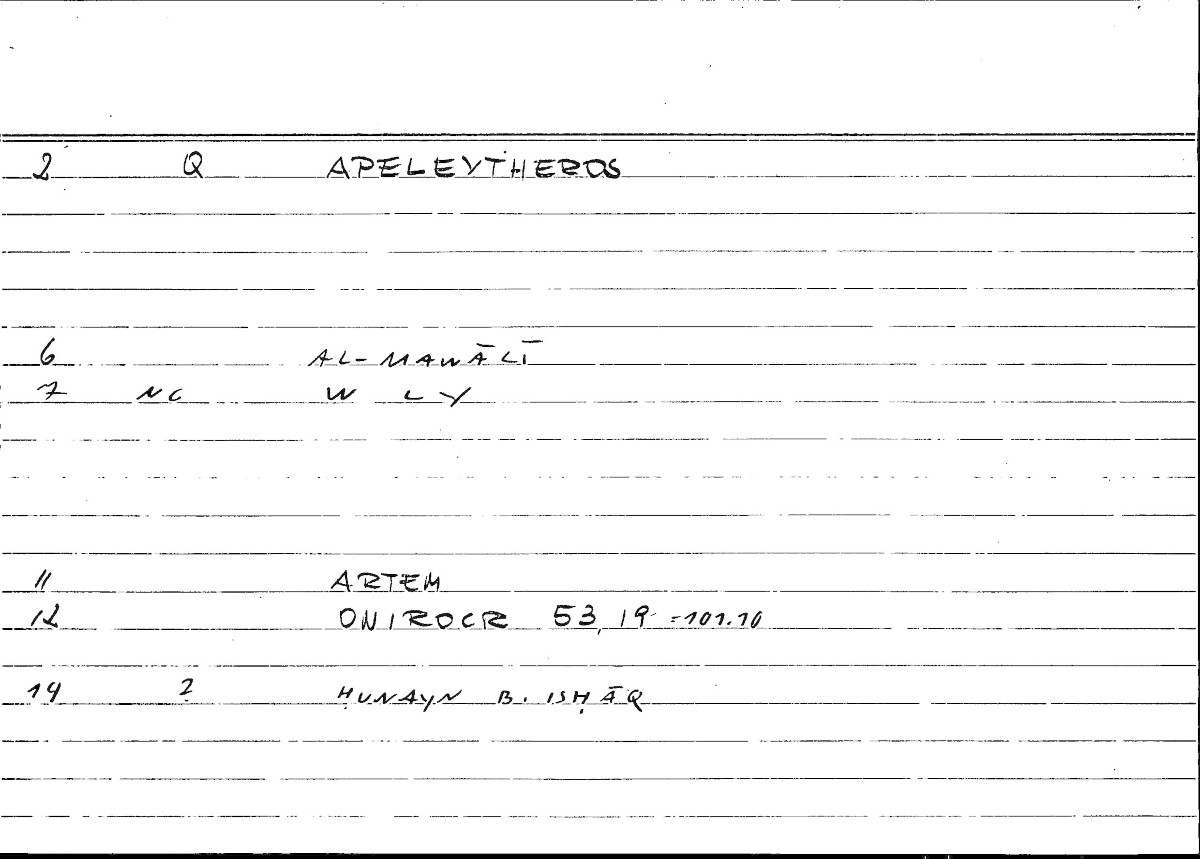 2 Q APELEYTHEROS
6 AL-MAWĀLĪ
7 NC W L Y
11 ARTEM
12 ONIROCR 53,19 =101.10
14 2 ḤUNAYN B. ISḤĀQ